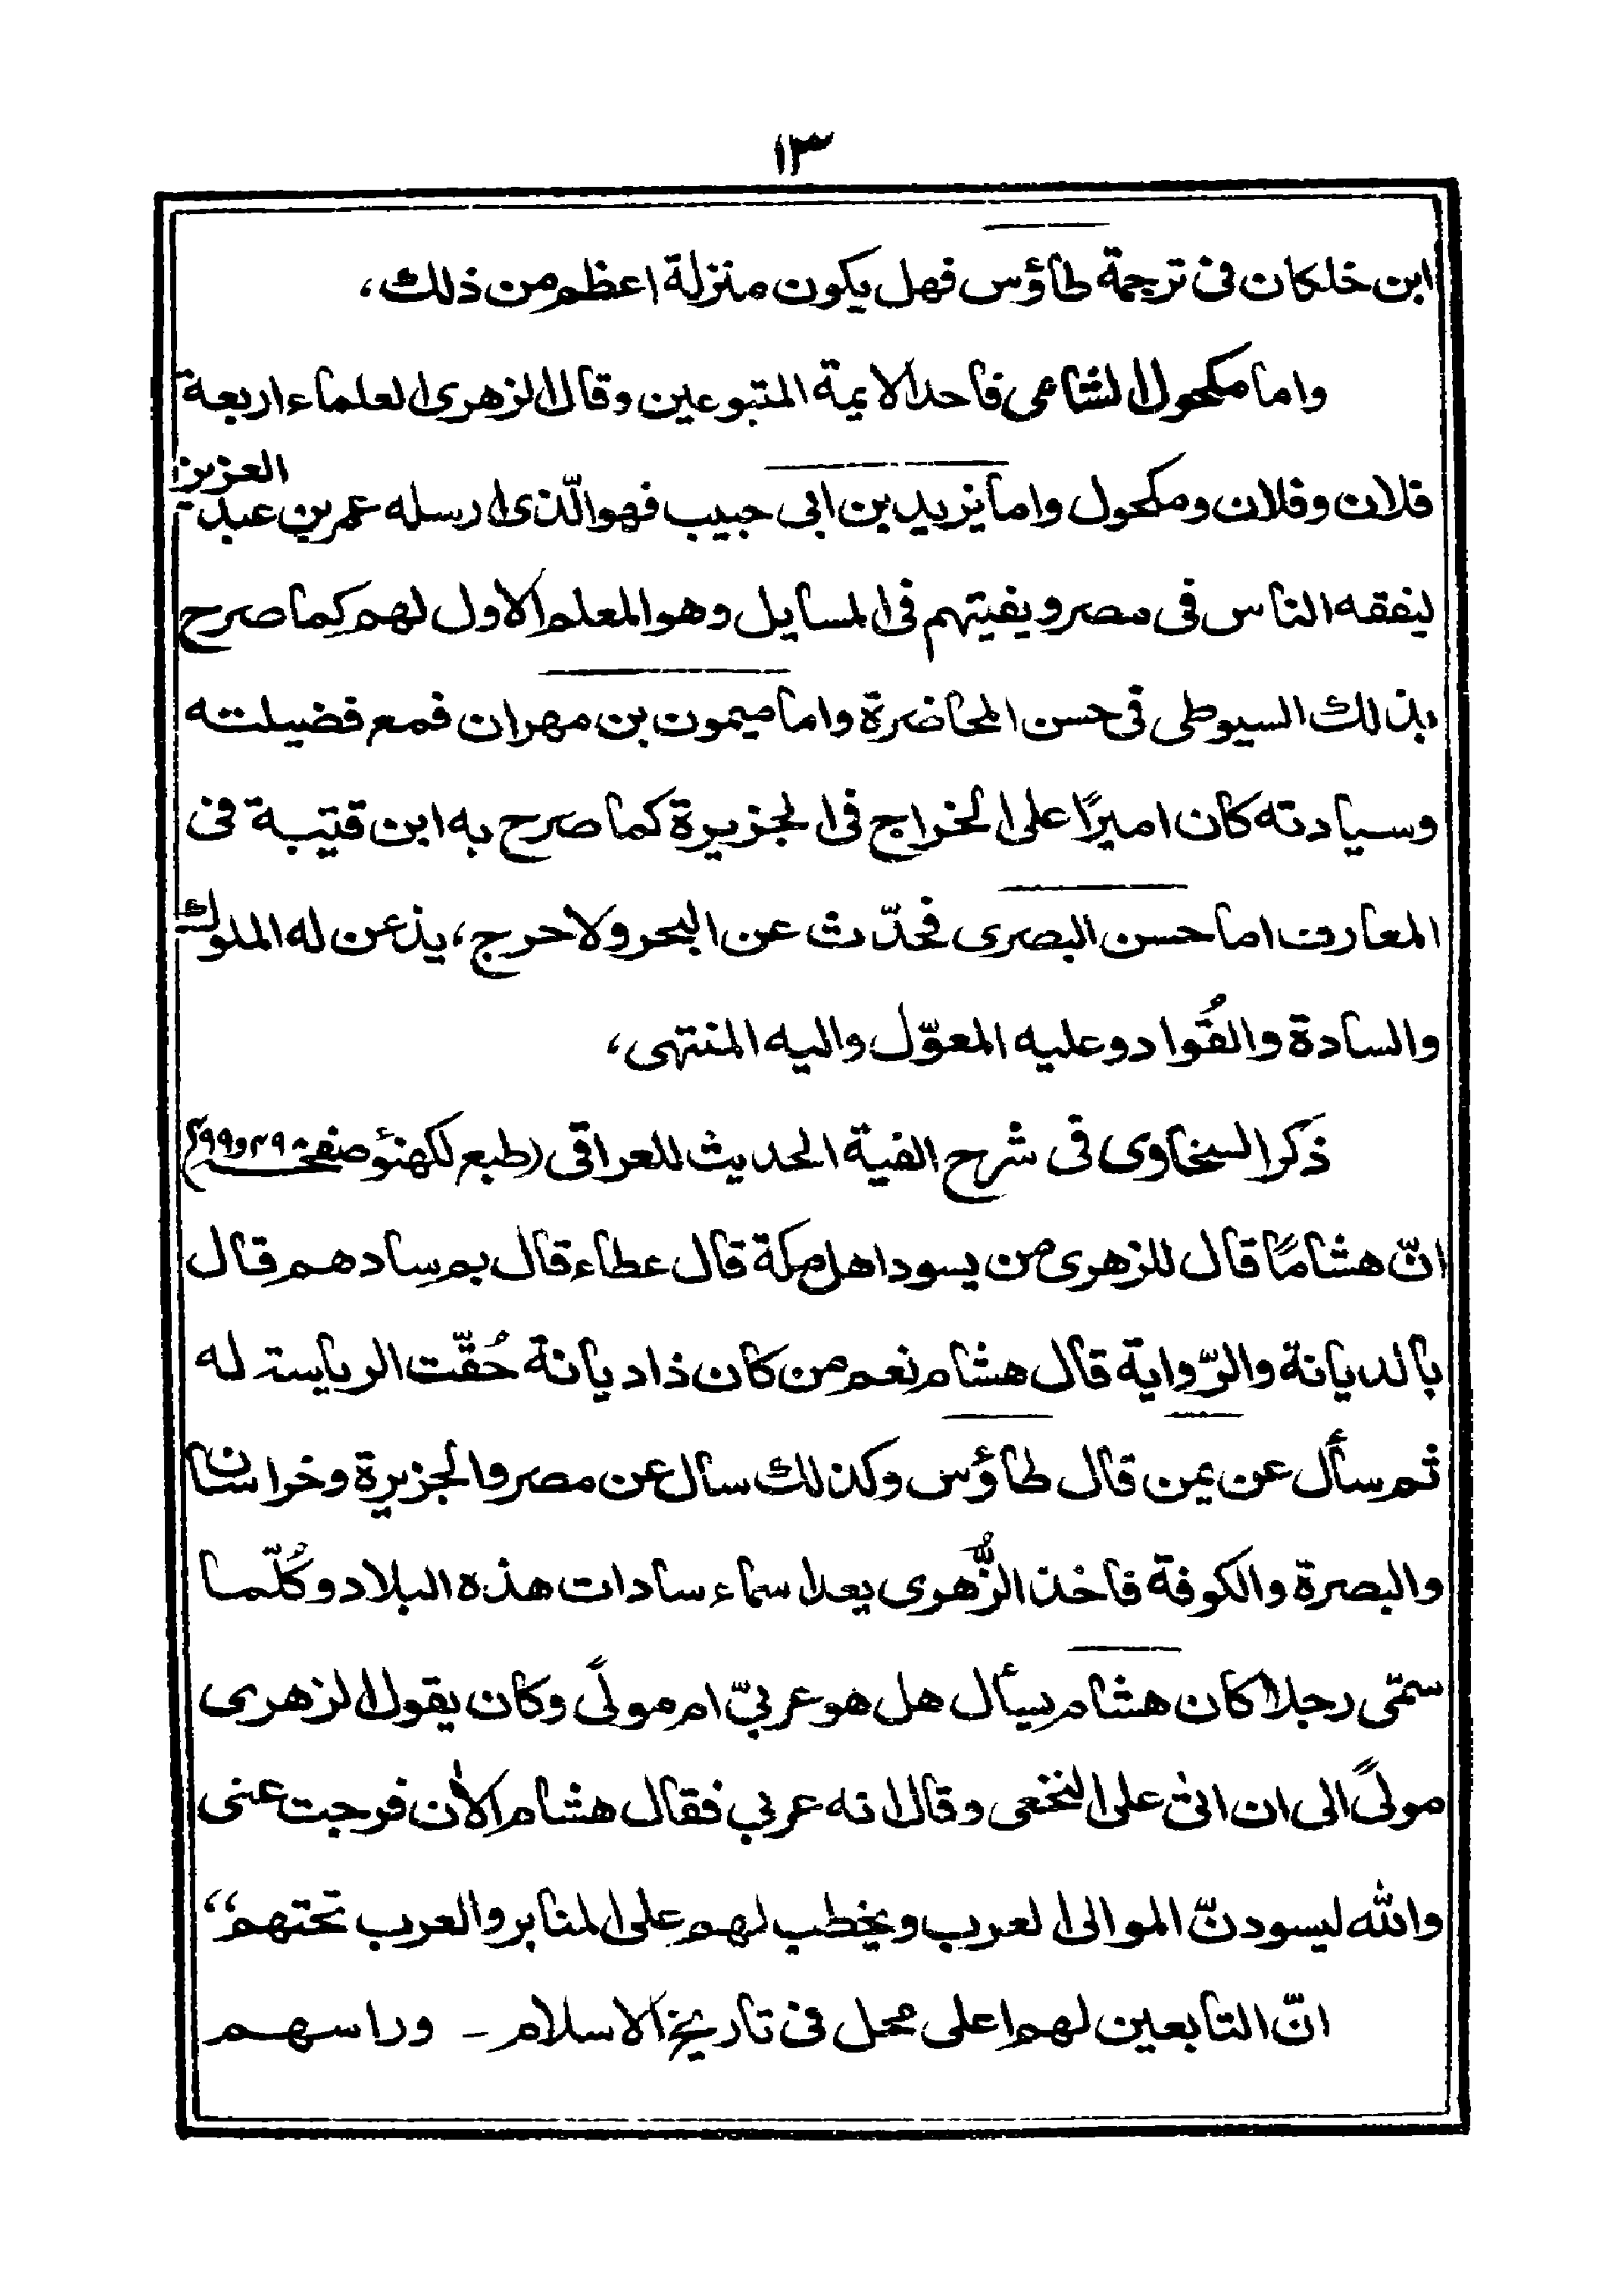 ١٣
ابن خلكان فى ترجمة طاؤس فهل يكون منزلة اعظم من ذلك،
واما مكحول الشامى فاحد الايمة المتبوعين وقال الزهرى العلماء اربعة
فلان وفلان ومكحول واما يزيد بن ابى حبيب فهو الّذى ارسله عمر بن عبد العزيز
ليفقه الناس فى مصر ويفيتهم فى المسايل وهو المعلم الاول لهم كما صرح
بذلك السيوطى فى حسن المحاضرة واما ميمون بن مهران فمع فضيلته
وسيادته كان اميرًا على الخراج فى الجزيرة كما صرح به ابن قتيبة فى
المعارف اما حسن البصرى فحدّث عن البحر ولا حرج، يذعن له الملوك
والسادة والقُواد وعليه المعوّل واليه المنتهى،
ذكر السخاوى فى شرح الفية الحديث للعراقى (طبع لكهنؤ صفحه
انّ هشامًا قال للزهرى من يسود اهل مكة قال عطاء قال بم سادهم قال
بالديانة والرّواية قال هشام نعم من كان ذا ديانة حُقّت الرياسته له
ثم سأل عن يمن قال طاؤس وكذلك سال عن مصر والجزيرة وخراسان
والبصرة والكوفة فاخذ الزُّهرى يعد اسماء سادات هذه البلاد وكُلّما
سمّى رجلا كان هشام يسأل هل هو عربىّ ام مولًى وكان يقول الزهرى
مولًى الى ان اتى على النخعى وقال انه عربي فقال هشام الاٰن فرجت عنى
والله ليسودنّ الموالى العرب ويخطب لهم على المنابر والعرب تحتهم“
انّ التابعين لهم اعلى محل فى تاريخ الاسلام - وراسهم